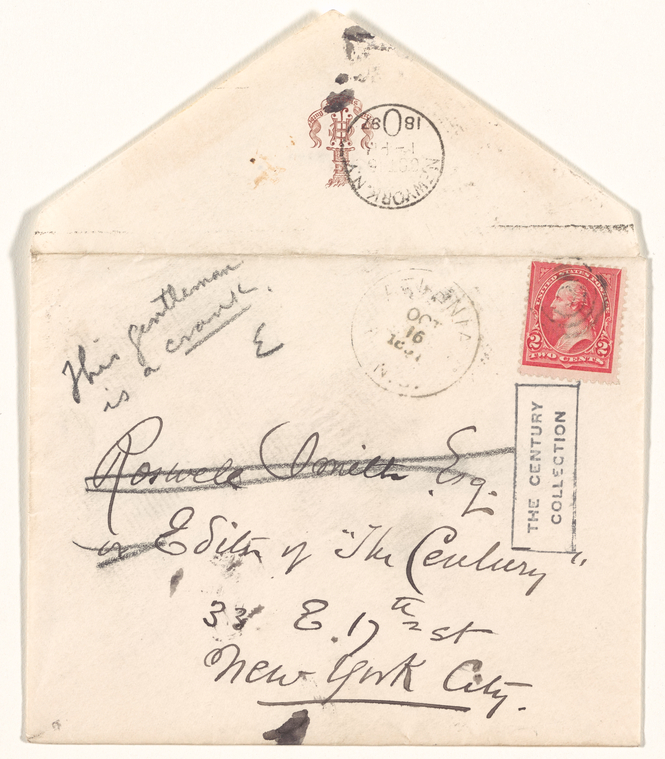 NEW YORK, N.Y.
1897
This gentleman
is a crank.
E
OCT
16
UNITED STATES
2 2
TWO CENTS
THE CENTURY
COLLECTION
Roswell Smith Esq.
or Editor of "The Century"
33 E. 17th st
New York City.